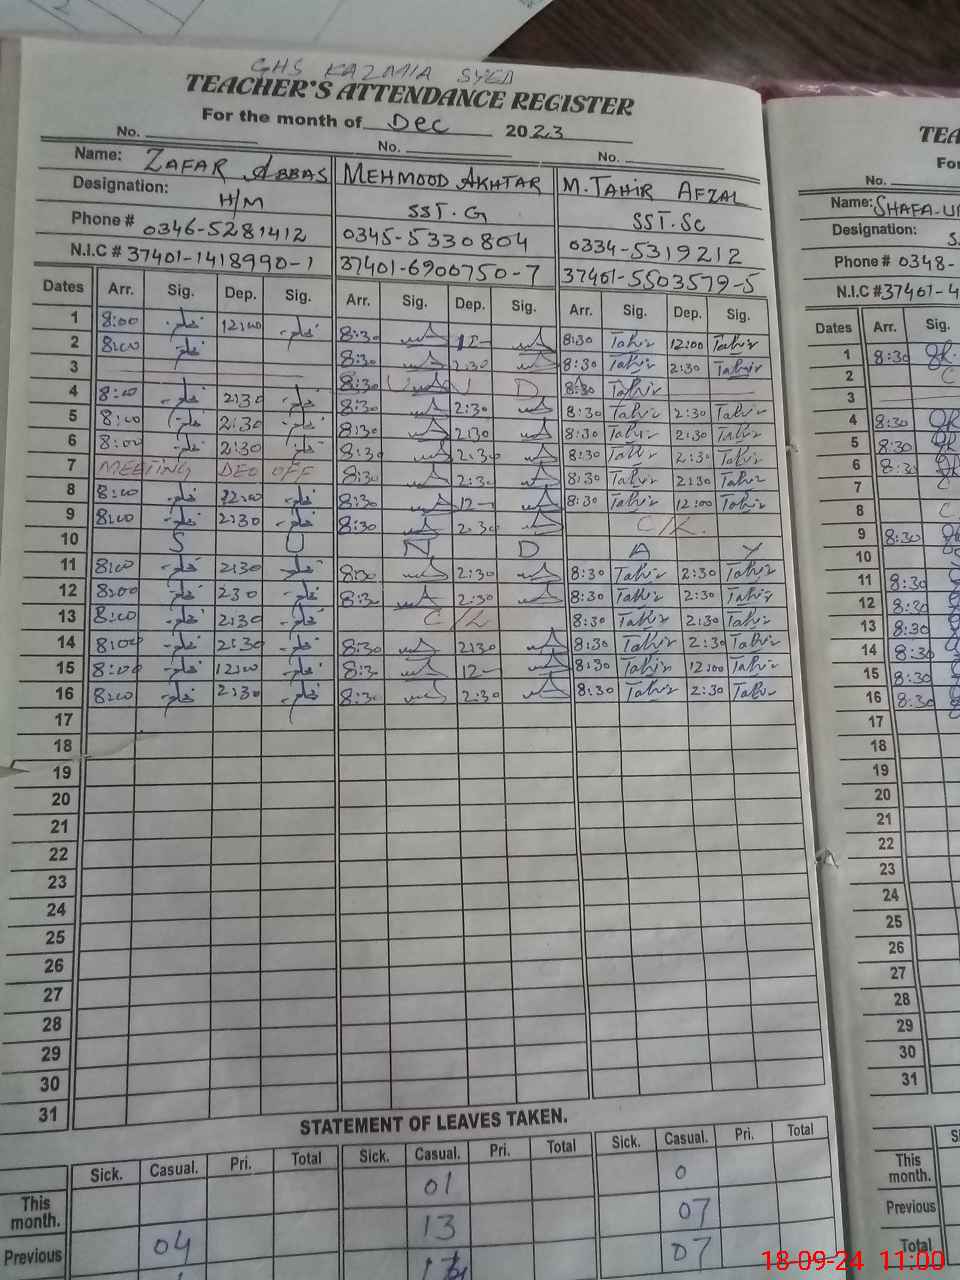 GHS KAZMIA SYED
TEACHER'S ATTENDANCE REGISTER
For the month of Dec 2023
No. No. No.
Name: ZAFAR ABBAS MEHMOOD AKHTAR M. TAHIR AFZAL
Designation: H/M SST.G SST.Sc
Phone # 0346-5281412 0345-5330804 0334-5319212
N.I.C # 37401-1418990-1 37401-6900750-7 37401-5503579-5
Dates Arr. Sig. Dep. Sig. Arr. Sig. Dep. Sig. Arr. Sig. Dep. Sig.
1 8:00 12:00 8:30 12- 8:30 Tahir 12:00 Tahir
2 8:00 8:30 2:30 8:30 Tahir 2:30 Tahir
3 8:30 D 8:30 Tahir
4 8:00 2:30 8:30 2:30 8:30 Tahir 2:30 Tahir
5 8:00 2:30 8:30 2:30 8:30 Tahir 2:30 Tahir
6 8:00 2:30 8:30 2:30 8:30 Tahir 2:30 Tahir
7 MEETING DEO OFF 8:30 2:30 8:30 Tahir 2:30 Tahir
8 8:00 12:00 8:30 12- 8:30 Tahir 12:00 Tahir
9 8:00 2:30 8:30 2:30 C/L.
10 S U N D A Y
11 8:00 2:30 8:30 2:30 8:30 Tahir 2:30 Tahir
12 8:00 230 8:30 2:30 8:30 Tahir 2:30 Tahir
13 8:00 2:30 C/L 8:30 Tahir 2:30 Tahir
14 8:00 2:30 8:30 2:30 8:30 Tahir 2:30 Tahir
15 8:00 12:00 8:30 12- 8:30 Tahir 12:00 Tahir
16 8:00 2:30 8:30 2:30 8:30 Tahir 2:30 Tahir
17
18
19
20
21
22
23
24
25
26
27
28
29
30
31
STATEMENT OF LEAVES TAKEN.
Sick. Casual. Pri. Total Sick. Casual. Pri. Total Sick. Casual. Pri. Total
This month. 01 0
Previous 04 13 07
07
TEA
For
No.
Name: SHAFA-U
Designation: S
Phone # 0348-
N.I.C # 37401-4
Dates Arr. Sig.
1 8:30
2 C
3
4 8:30
5 8:30
6 8:30
7 C
8 C
9 8:30
10
11 8:30
12 8:30
13 8:30
14 8:30
15 8:30
16 8:30
17
18
19
20
21
22
23
24
25
26
27
28
29
30
31
This month.
Previous
Total
18-09-24 11:00